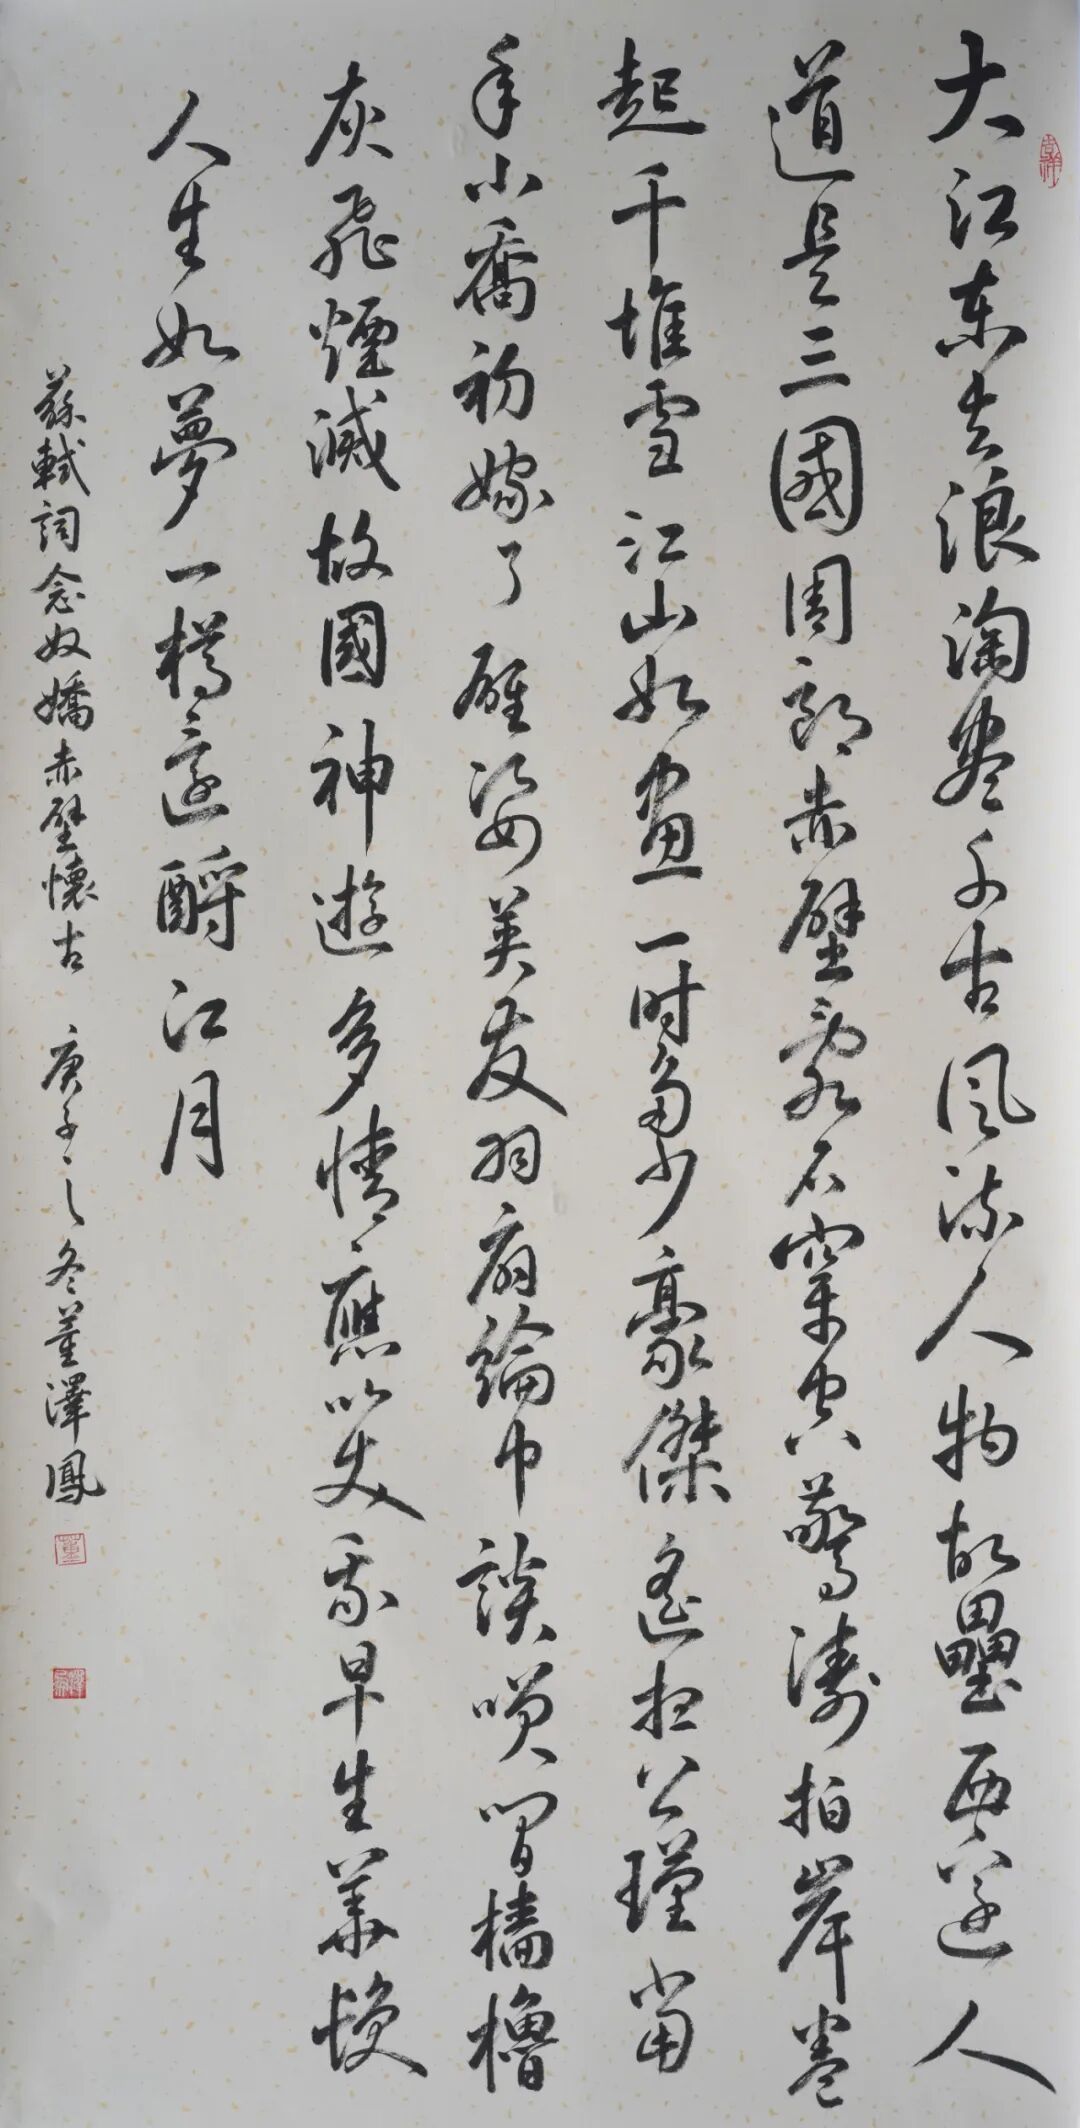 大江东去浪淘盡千古风流人物故壘西邊人
道是三國周郎赤壁亂石穿空驚濤拍岸卷
起千堆雪江山如畫一时多少豪傑遙想公瑾當
年小喬初嫁了雄姿英发羽扇綸巾談咲間檣櫓
灰飛煙滅故國神遊多情應笑我早生華髮
人生如夢一樽還酹江月
蘇軾詞念奴嬌赤壁懷古 庚子之冬董澤鳳
董